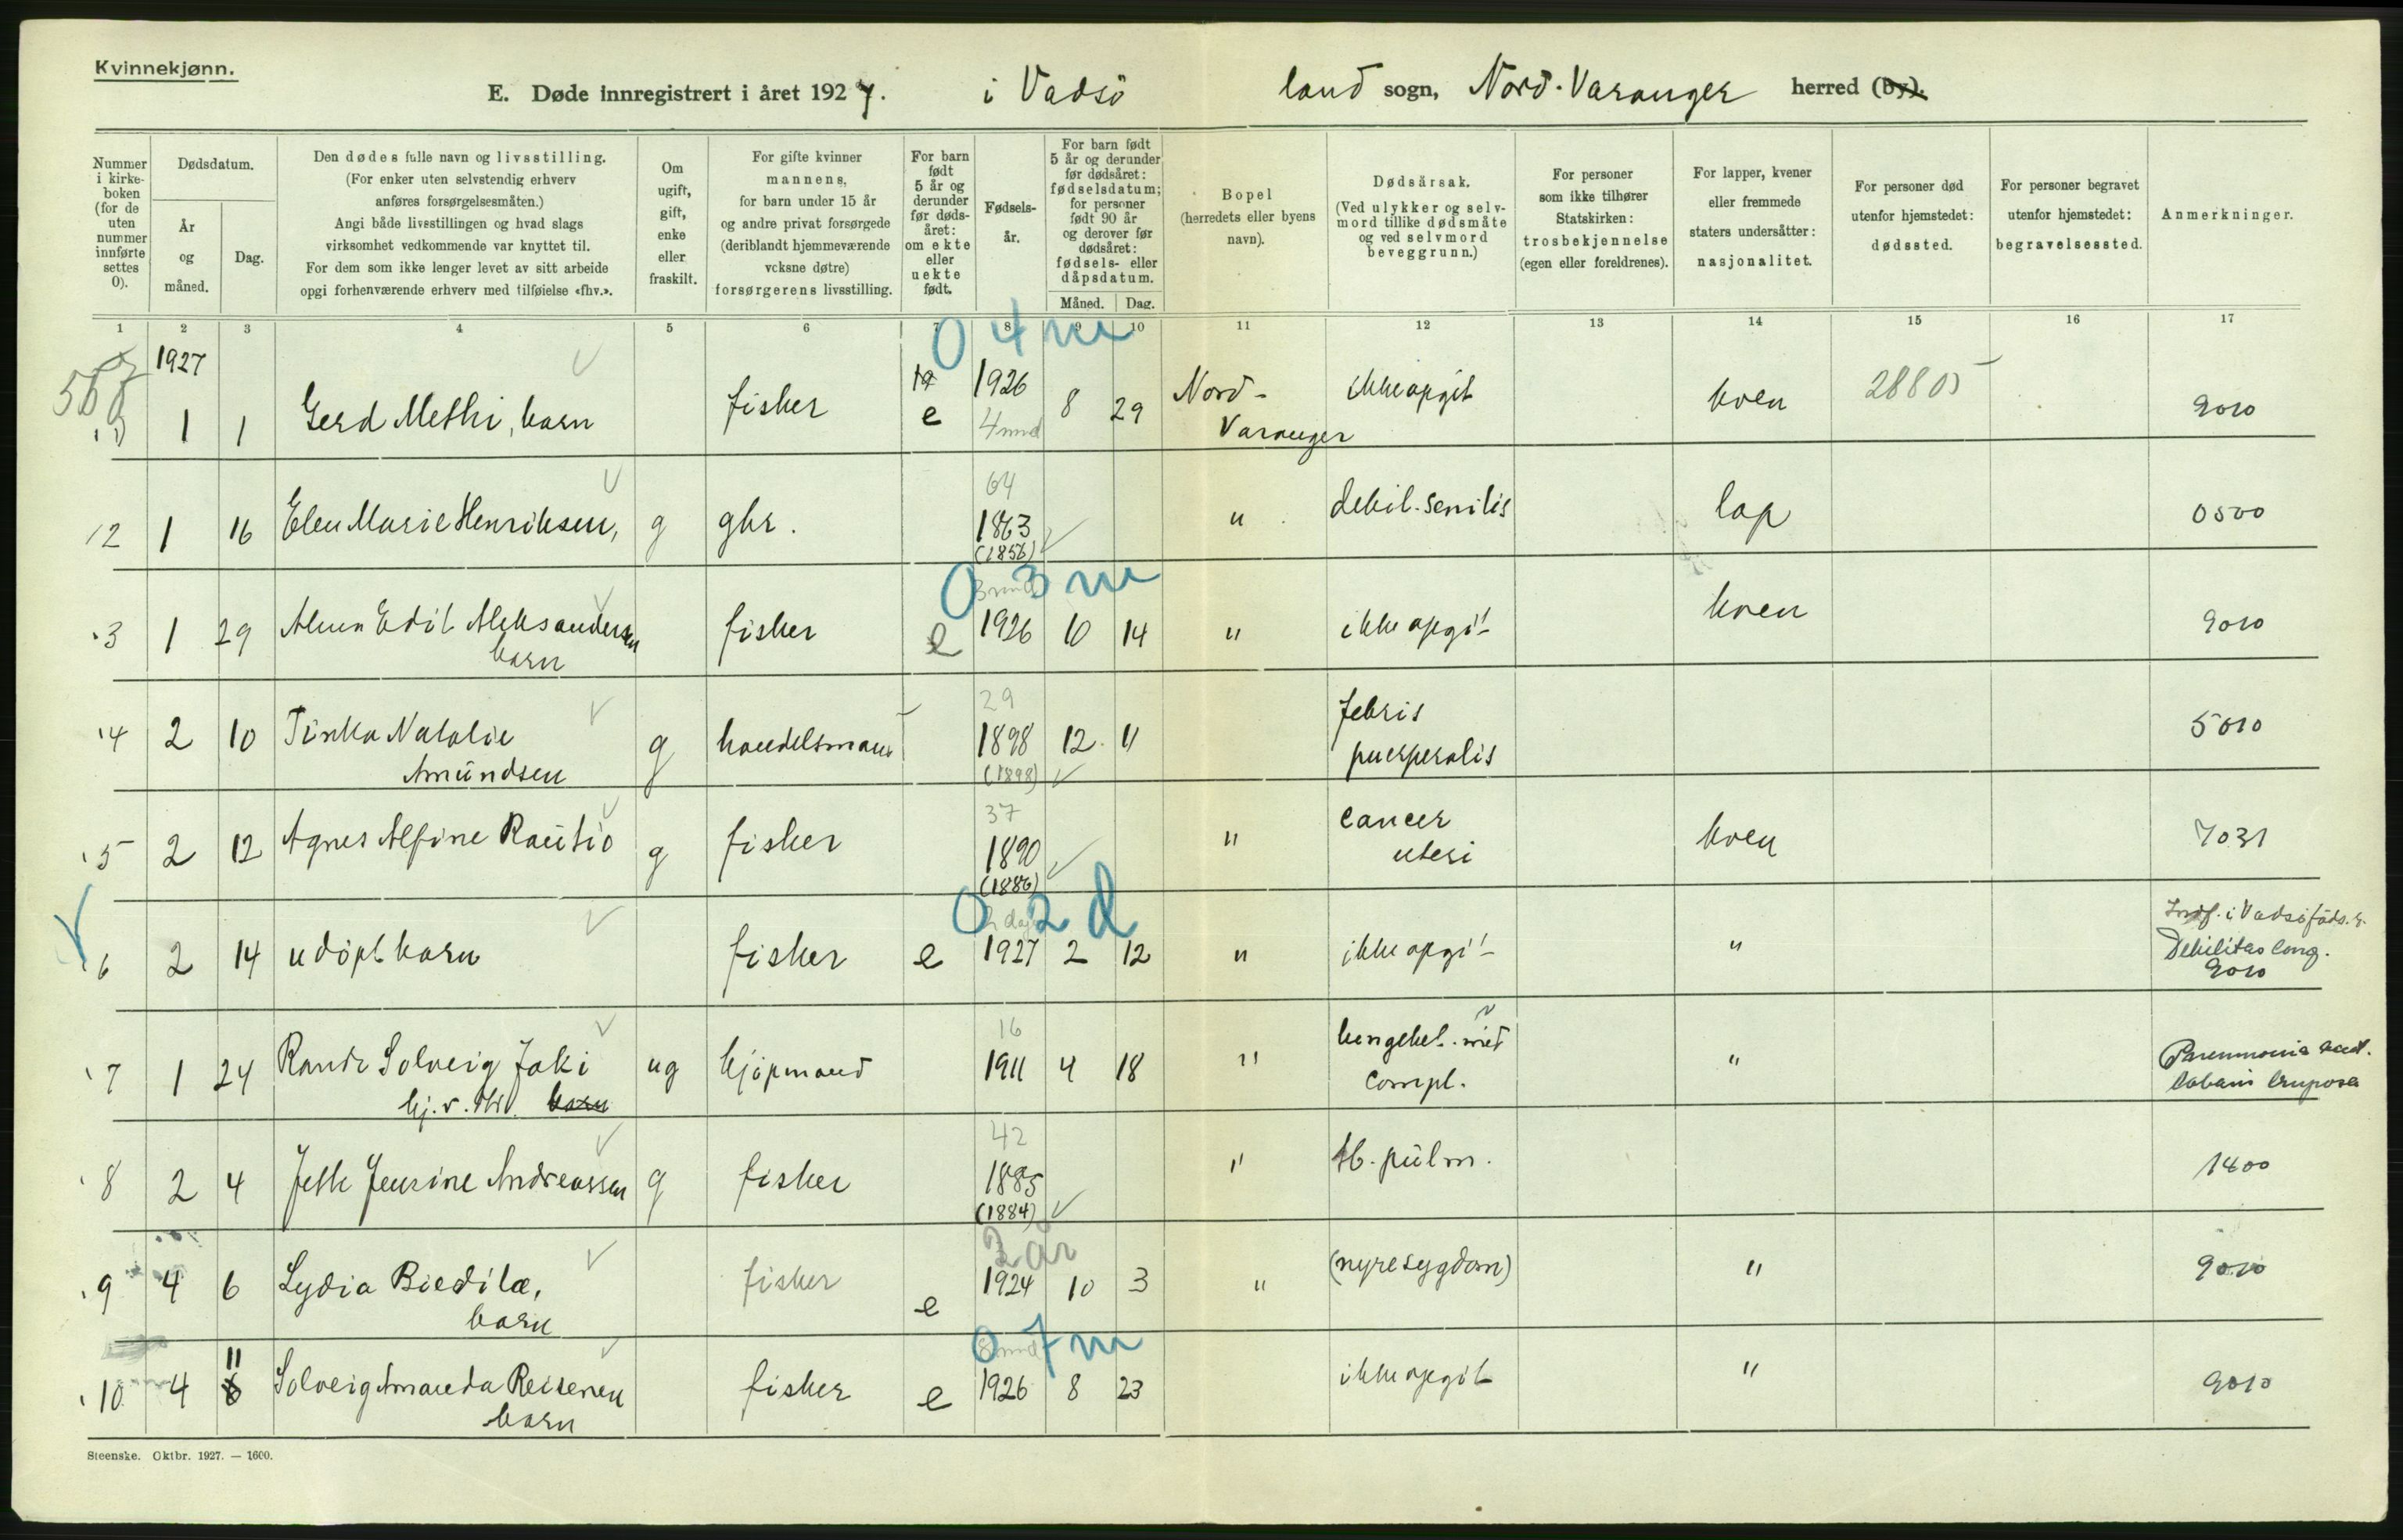 Kvinnekjønn.
E. Døde innregistrert i året 1927. i Vadsö land sogn, Nord-Varanger herred (by).
Nummer i kirkeboken (for de uten nummer innførte settes 0).
Dødsdatum.
År og måned.
Dag.
Den dødes fulle navn og livsstilling.
(For enker uten selvstendig erhverv
anføres forsørgelsesmåten.)
Angi både livsstillingen og hvad slags
virksomhet vedkommende var knyttet til.
For dem som ikke lenger levet av sitt arbeide
opgi forhenværende erhverv med tilføielse «fhv.».
Om ugift, gift, enke eller fraskilt.
For gifte kvinner
mannens,
for barn under 15 år
og andre privat forsørgede
(deriblandt hjemmeværende
voksne døtre)
forsørgerens livsstilling.
For barn født 5 år og derunder før dødsåret: om ekte eller uekte født.
Fødselsår.
For barn født
5 år og derunder
før dødsåret:
fødselsdatum;
for personer
født 90 år
og derover før
dødsåret:
fødsels- eller
dåpsdatum.
Måned. Dag.
Bopel
(herredets eller byens
navn).
Dødsårsak.
(Ved ulykker og selvmord
tillike dødsmåte
og ved selvmord
beveggrunn.)
For personer
som ikke tilhører
Statskirken:
trosbekjennelse
(egen eller foreldrenes).
For lapper, kvener
eller fremmede
staters undersåtter:
nasjonalitet.
For personer død
utenfor hjemstedet:
dødssted.
For personer begravet
utenfor hjemstedet:
begravelsessted.
Anmerkninger.
1 2 3 4 5 6 7 8 9 10 11 12 13 14 15 16 17
0 4 m
1927
1 1 1 Gerd Methi, barn fisker e 1926 4 mnd 8 29 Nord-Varanger ikke opgit kven 28805 9010
64
2 1 16 Elen Marie Henriksen, g gbr. 1863 (1856) " debil. senilis lap 0500
0 3 m
3 1 29 Alma Edit Aleksandersen barn fisker e 1926 10 14 " ikke opgit kven 9010
29
4 2 10 Tinka Natalie Amündsen g handelsmann 1898 (1898) 12 11 febris puerperalis 5010
37
5 2 12 Agnes Alfine Raütio g fisker 1890 (1886) " cancer uteri kven 7031
0 2 d
6 2 14 udöpt barn fisker e 1927 2 12 " ikke opgit " Indf. i Vadsö föds.r. Debilitas cong. 9010
16
7 1 24 Randi Solveig Jaki hj.v. barn ug kjöpmand 1911 4 18 " lungebet. med compl. " Pneumonia
42
8 2 4 Jeth Jensine Andreassen g fisker 1885 (1884) " tb. pülm. 1400
3 år
9 4 6 Lydia Biedilæ, barn fisker e 1924 10 3 " (nyresygdom) " 9010
0 7 m
10 4 11 Solveig Amanda Reisenen barn fisker e 1926 8 23 ikke opgit " 9010
Steenske. Oktbr. 1927. — 1600.